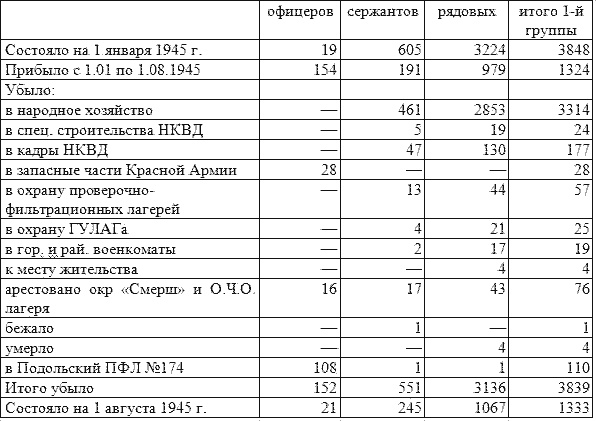 офицеров сержантов рядовых итого 1-й
группы
Состояло на 1 января 1945 г. 19 605 3224 3848
Прибыло с 1.01 по 1.08.1945 154 191 979 1324
Убыло:
в народное хозяйство — 461 2853 3314
в спец. строительства НКВД — 5 19 24
в кадры НКВД — 47 130 177
в запасные части Красной Армии 28 — — 28
в охрану проверочно- — 13 44 57
фильтрационных лагерей
в охрану ГУЛАГа — 4 21 25
в гор. и рай. военкоматы — 2 17 19
к месту жительства — — 4 4
арестовано окр «Смерш» и О.Ч.О. 16 17 43 76
лагеря
бежало — 1 — 1
умерло — — 4 4
в Подольский ПФЛ №174 108 1 1 110
Итого убыло 152 551 3136 3839
Состояло на 1 августа 1945 г. 21 245 1067 1333